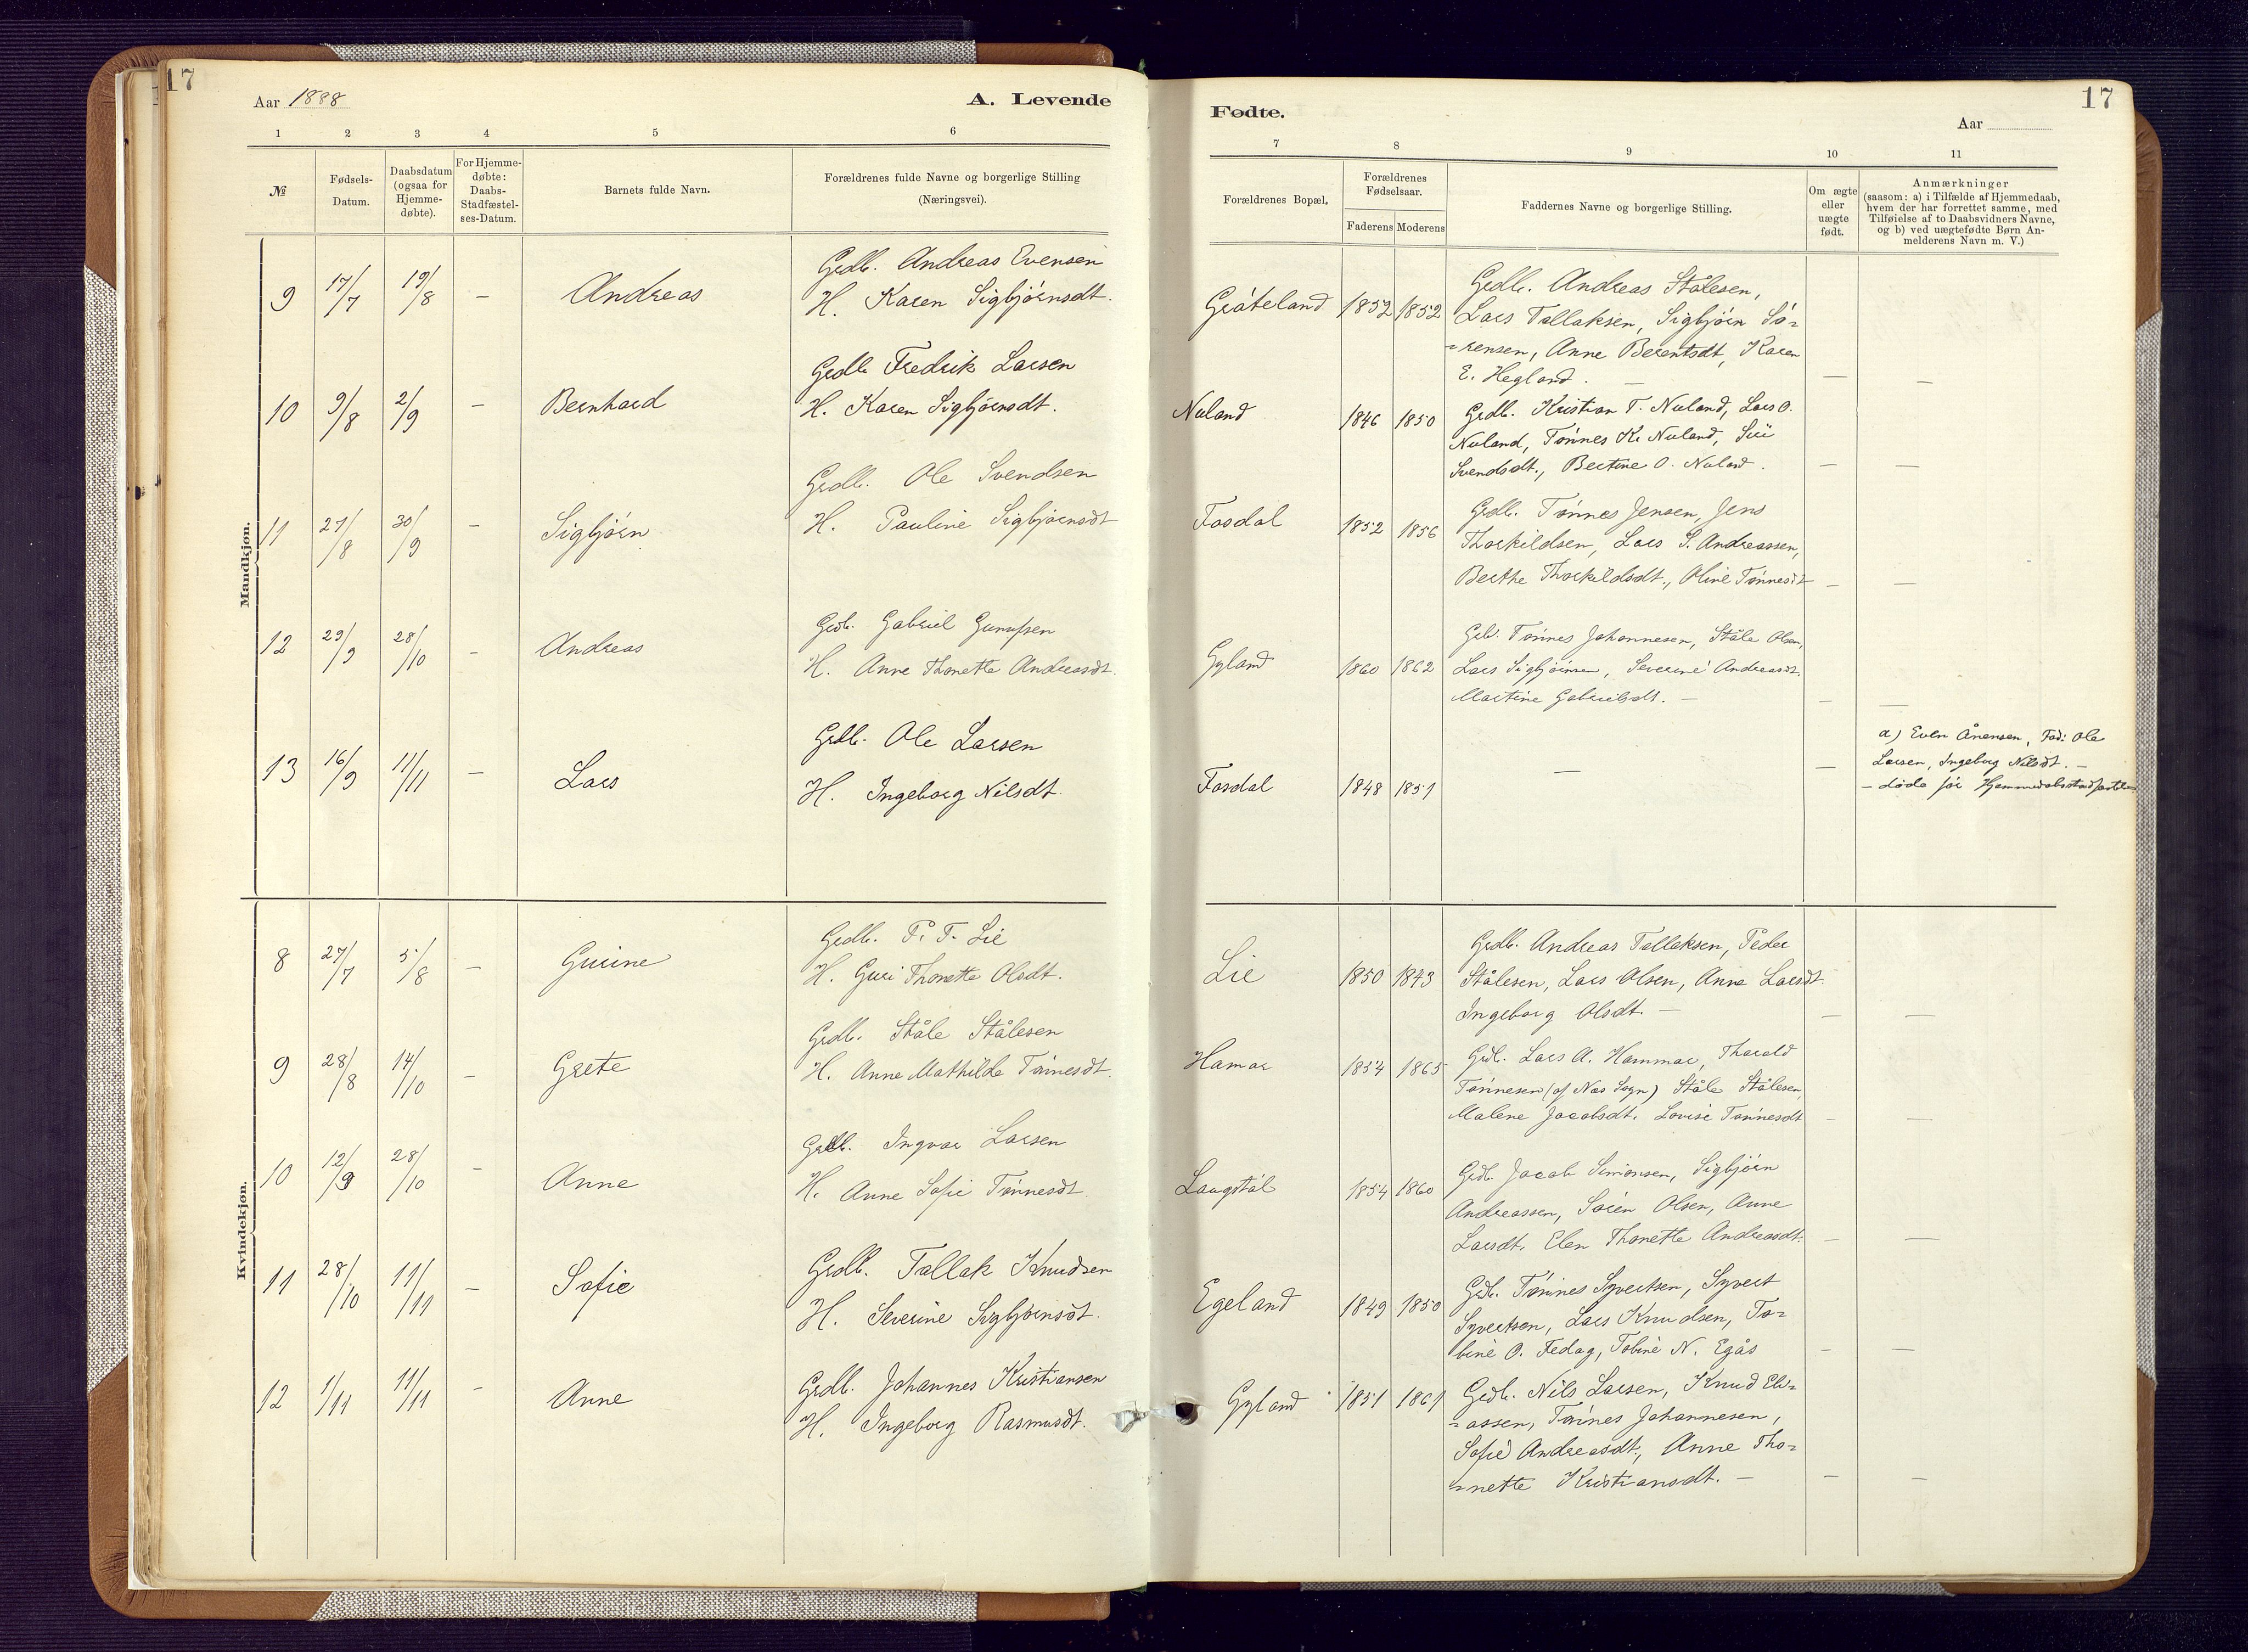 17
Aar 1888
A. Levende
1 2 3 4 5 6
№
Fødsels-
Datum.
Daabsdatum
(ogsaa for
Hjemme-
døbte).
For Hjemme-
døbte:
Daabs-
Stadfæstel-
ses-Datum.
Barnets fulde Navn.
Forældrenes fulde Navne og borgerlige Stilling
(Næringsvei).
Mandkjøn.
9 17/7 19/8 – Andreas
Grdb. Andreas Evensen
H. Karen Sigbjørnsdt.
10 9/8 2/9 – Bernhard
Grdb. Fredrik Larsen
H. Karen Sigbjørnsdt.
11 27/8 30/9 – Sigbjörn
Grdb. Ole Svendsen
H. Pauline Sigbjørnsdt
12 29/9 28/10 – Andreas
Grdb. Gabriel Gunufsen
H. Anne Thonette Andreasdt.
13 16/9 11/11 – Lars
Grdb. Ole Larsen
H. Ingeborg Nilsdt.
Kvindekjøn.
8 27/7 5/8 – Gurine
Grdb. P. T. Lie
H. Guri Thonette Olsdt.
9 28/8 14/10 – Grete
Grdb. Ståle Stålesen
H. Anne Mathilde Tönnesdt.
10 12/9 28/10 – Anne
Grdb. Ingvar Larsen
H. Anne Sofie Tønnesdt.
11 28/10 11/11 – Sofie
Grdb. Tallak Knudsen
H. Severine Sigbjørnsdt.
12 1/11 11/11 – Anne
Grdb. Johannes Kristiansen
H. Ingeborg Rasmusdt.
17
Fødte.
Aar
7 8 9 10 11
Forældrenes Bopæl.
Forældrenes
Fødselsaar.
Faderens Moderens
Faddernes Navne og borgerlige Stilling.
Om ægte
eller
uægte
født.
Anmærkninger
(saasom: a) i Tilfælde af Hjemmedaab,
hvem der har forrettet samme, med
Tilføielse af to Daabsvidners Navne,
og b) ved uægtefødte Børn An-
melderens Navn m. V.)
Gråteland 1852 1852
Grdb. Andreas Stålesen,
Lars Tallaksen, Sigbjörn Sö-
-rensen, Anne Berentsdt, Karen
E. Hegland. – – –
Nuland 1846 1850
Grdb. Kristian T. Nuland, Lars O.
Nuland, Tönnes K. Nuland, Siri
Svendsdt., Bertine O. Nuland. – –
Fosdal 1852 1856
Grdb. Tönnes Jensen, Jens
Thorkildsen, Lars S. Andreassen,
Berthe Thorkildsdt., Oline Tønnesdt – –
Gyland 1860 1862
Grdb. Tönnes Johannesen, Ståle Olsen,
Lars Sigbjörnsen, Severine Andreasdt.
Martine Gabrielsdt. – – –
Fosdal 1848 1851 – –
a) Even Ånensen, Fad: Ole
Larsen, Ingeborg Nilsdt. –
– døde för Hjemmedabsstadfæstelse
Lie 1850 1843
Grdb. Andreas Tallaksen, Peder
Stålesen, Lars Olsen, Anne Larsdt.
Ingeborg Olsdt. – – –
Hamar 1854 1865
Grdb. Lars A. Hammar, Tharald
Tønnesen (af Næs Sogn) Ståle Stålesen,
Malene Jacobsdt. Lovise Tønnesdt – –
Laugstöl 1854 1860
Grdb. Jacob Simonsen, Sigbjörn
Andreassen, Sören Olsen, Anne
Larsdt, Elen Thonette Andreasdt. – –
Egeland 1849 1850
Grdb. Tønnes Syvertsen, Syvert
Syvertsen, Lars Knudsen, To-
bine O. Fedog, Tobine N. Egås – –
Gyland 1851 1861
Grdb. Nils Larsen, Knud Eli-
-assen, Tønnes Johannesen,
Sofie Andreasdt., Anne Tho-
-nette Kristiansdt. – – –